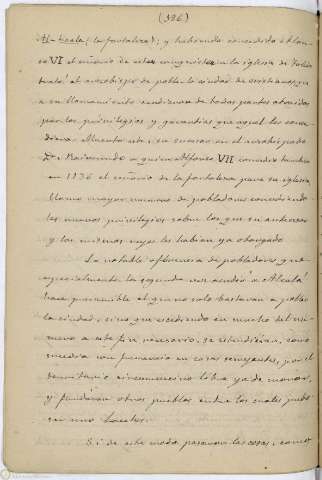 (326)
Al-kcala (la fortaleza); y habiendo concedido Alfon-
so VI el señorío de estas conquistas a la iglesia de Toledo
trató el arzobispo de poblar la ciudad de cristianos, que
a su llamamiento vinieron de todas partes atraidos
por los privilegios y garantias que aquel les conce-
diera. Aumentando su sucesor en el arzobispado
D. Raimundo a quien Alfonso VII concedió tambien
en 1136 el señorío de la fortaleza para su iglesia,
llamó mayor numero de pobladores concediendo-
les nuevos privilegios sobre los que su antecesor
y los mismos reyes les habian ya otorgado.
La notable afluencia de pobladores que
especialmente la segunda vez acudió a Alcalá
hace presumible el que no solo bastaran a poblar
la ciudad, sino que escediendo en mucho del nú-
mero a este fin necesario, se estendieran, como
sucedia con frecuencia en casos semejantes, por el
territorio circunvecino libre ya de moros,
y fundaran otros pueblos entre los cuales pudo
ser uno
Si de este modo pasaron las cosas, como